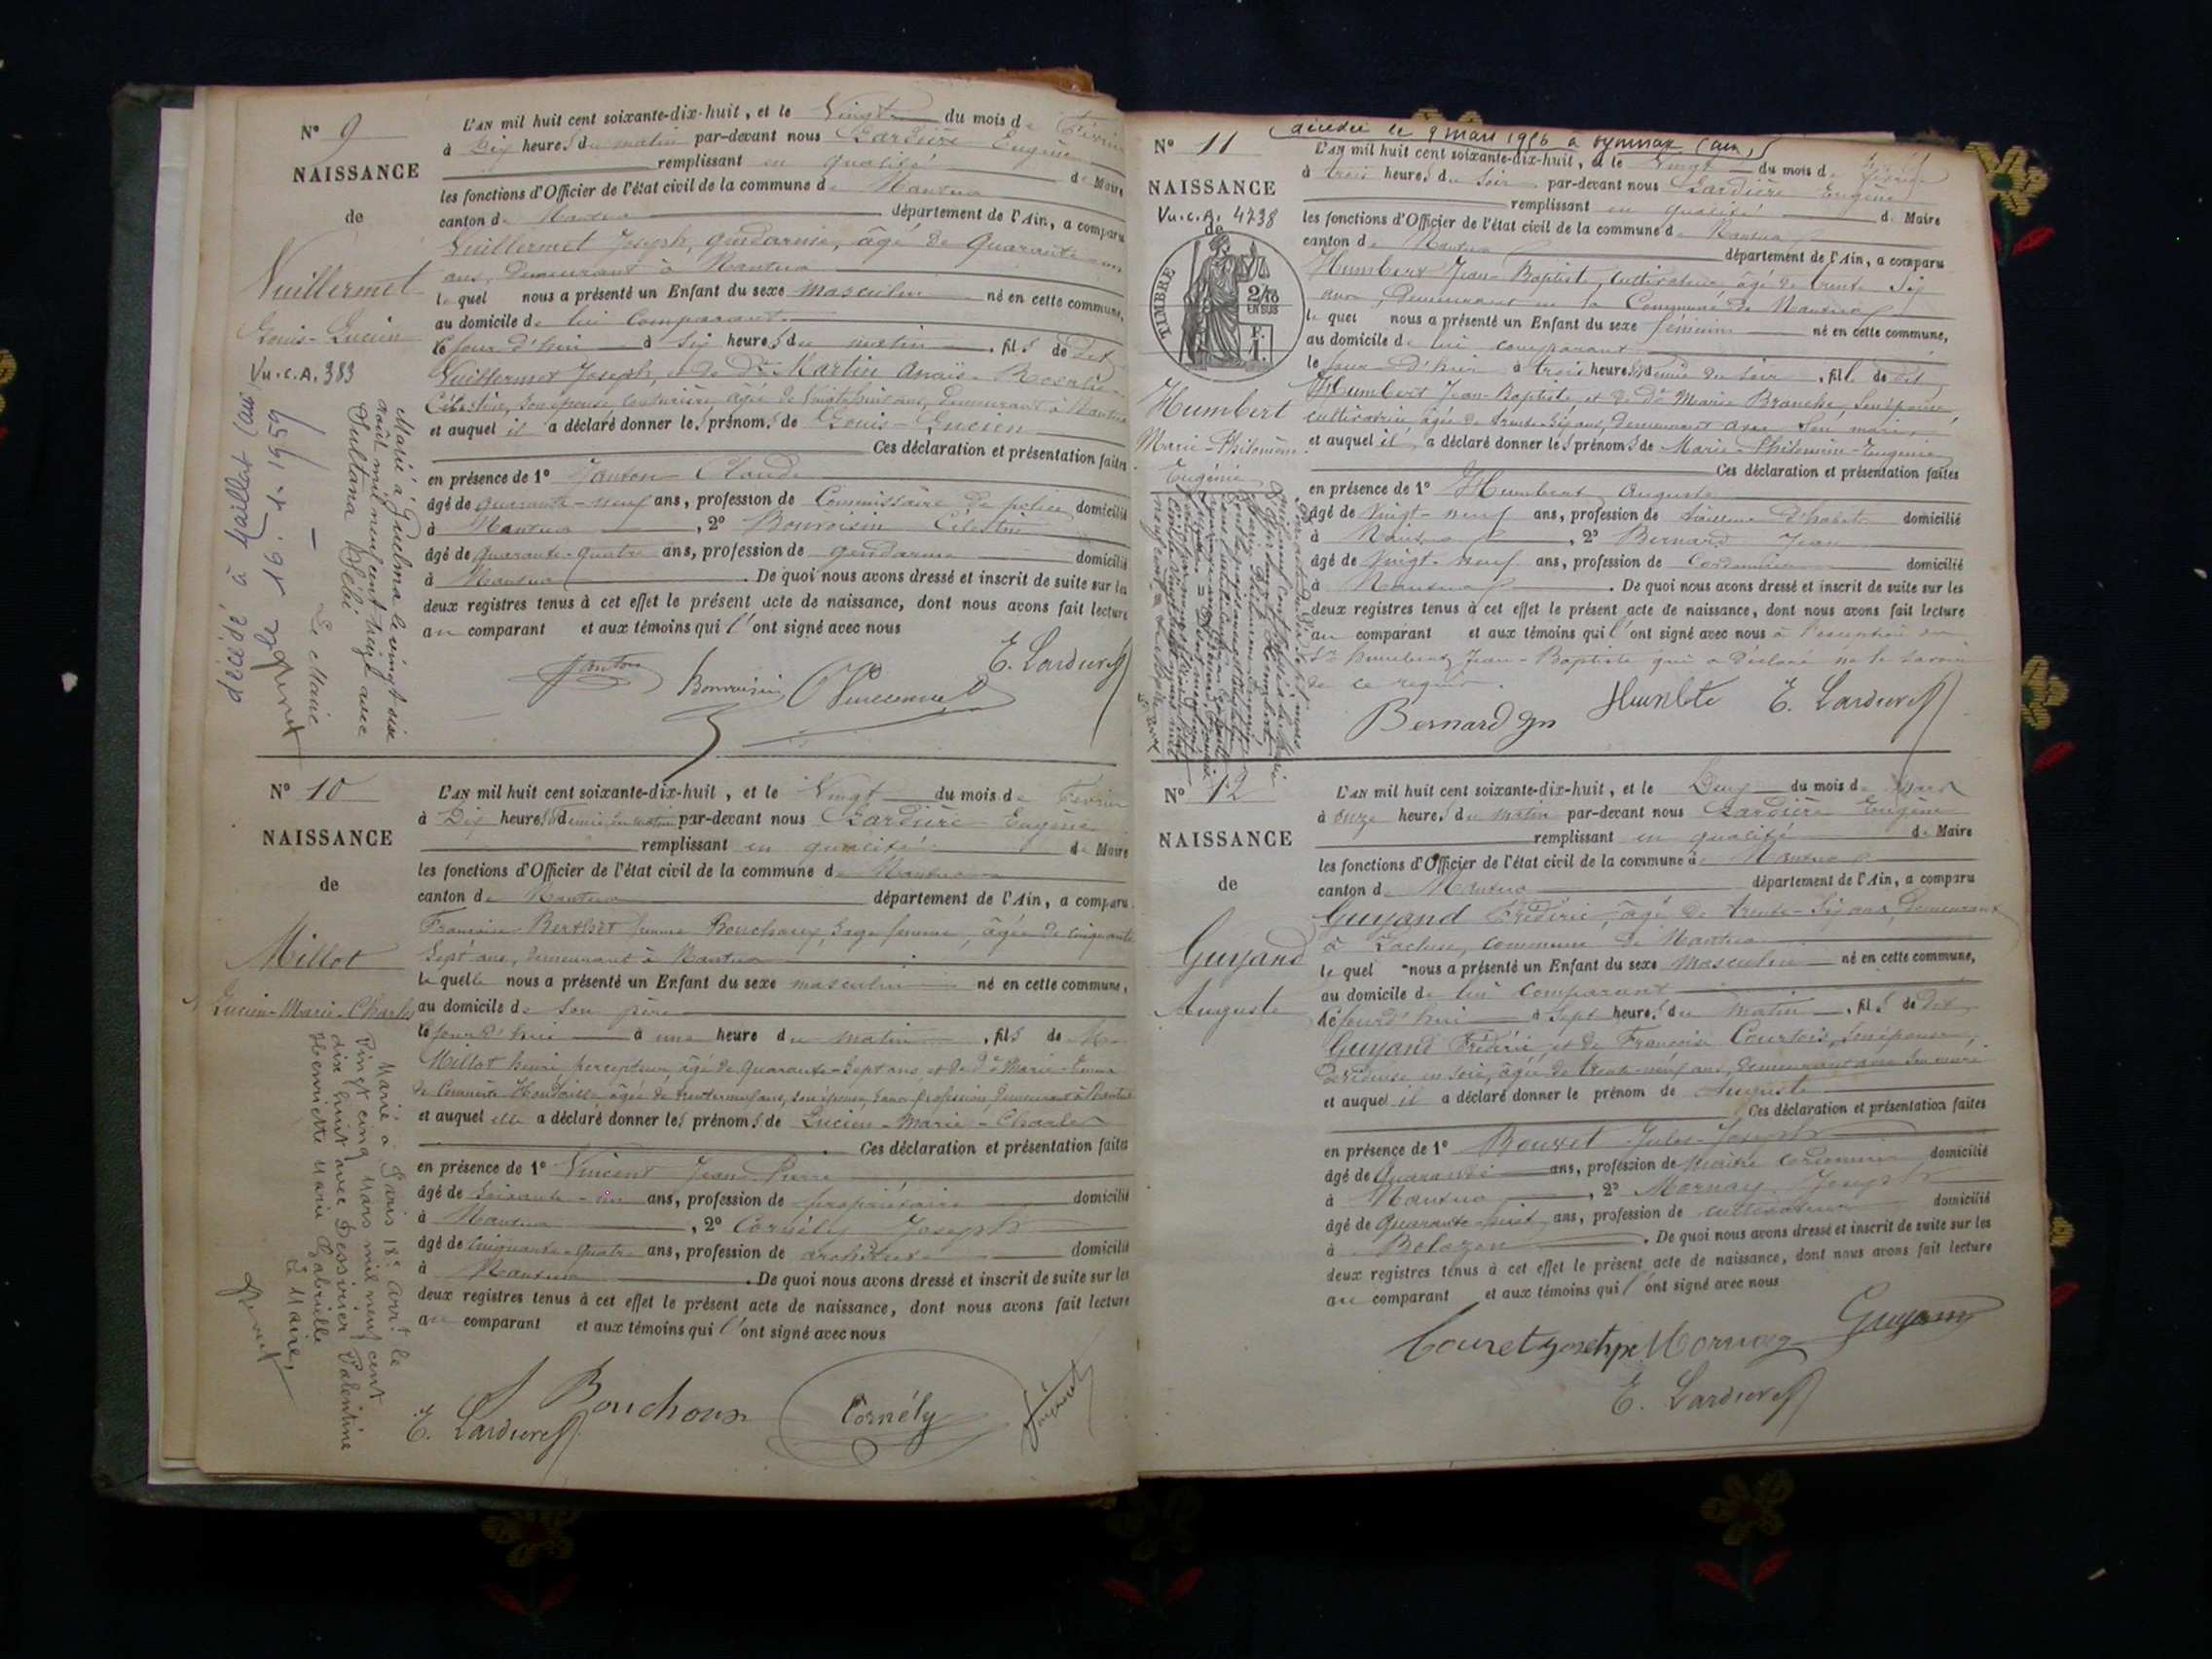 N° 9
NAISSANCE
de
Vuillermet
Louis-Lucien
Vu.c.A. 383
décédé à Maillat (ain)
le 16. 1. 1959
Marié à Guelma le vingt six
août mil neuf cent treize avec
Sultana
Le Maire
L'AN mil huit cent soixante-dix-huit, et le Vingt du mois de Février
à Dix heures du matin par-devant nous Lardière Eugène
remplissant en qualité de Maire
les fonctions d'Officier de l'état civil de la commune de Nantua
canton de Nantua département de l'Ain, a comparu
Vuillermet Joseph, gendarme, âgé de quarante
ans, demeurant à Nantua
lequel nous a présenté un Enfant du sexe masculin né en cette commune,
au domicile de lui comparant
le jour d'hui à Six heures du matin, fils de dit
Vuillermet Joseph, et de De Martin Anaïs-Rosalie
Célestine, son épouse, couturière âgée de vingt huit ans, demeurant à Nantua
et auquel il a déclaré donner les prénoms de Louis-Lucien
Ces déclaration et présentation faites
en présence de 1° Janton Claude
âgé de quarante-neuf ans, profession de Commissaire de police domicilié
à Nantua, 2° Bonvoisin Célestin
âgé de quarante-quatre ans, profession de gendarme domicilié
à Nantua. De quoi nous avons dressé et inscrit de suite sur les
deux registres tenus à cet effet le présent acte de naissance, dont nous avons fait lecture
au comparant et aux témoins qui l'ont signé avec nous
Janton Bonvoisin Vuillermet E. Lardière
N° 10
NAISSANCE
de
Millot
Lucien-Marie-Charles
Marié à Paris 18e arrt le
Vingt cinq Mars mil neuf cent
dix huit avec Dessirier Valentine
Henriette Marie Gabrielle
Le Maire,
L'AN mil huit cent soixante-dix-huit, et le Vingt du mois de Février
à Dix heures demie du matin par-devant nous Lardière Eugène
remplissant en qualité de Maire
les fonctions d'Officier de l'état civil de la commune de Nantua
canton de Nantua département de l'Ain, a comparu
Françoise Berthet femme Bouchoux, Sage femme, âgée de cinquante
Sept ans, demeurant à Nantua
laquelle nous a présenté un Enfant du sexe masculin né en cette commune,
au domicile de son père
le jour d'hui à une heure du matin, fils de Mr
Millot Henri percepteur, âgé de quarante-sept ans, et de De Marie-Emma
âgée de trente neuf ans, son épouse, sans profession, demeurant à Nantua
et auquel elle a déclaré donner les prénoms de Lucien-Marie-Charles
Ces déclaration et présentation faites
en présence de 1° Vincent Jean Pierre
âgé de Soixante-un ans, profession de propriétaire domicilié
à Nantua, 2° Cornély Joseph
âgé de Cinquante-quatre ans, profession de architecte domicilié
à Nantua. De quoi nous avons dressé et inscrit de suite sur les
deux registres tenus à cet effet le présent acte de naissance, dont nous avons fait lecture
au comparant et aux témoins qui l'ont signé avec nous
Bouchoux Cornély
E. Lardière
N° 11
NAISSANCE
Vu.c.A. 4738
de
TIMBRE
2/10
EN SUS
Humbert
Marie-Philomène
Eugénie
décédée le 9 mars 1956 à Oyonnax (ain)
L'AN mil huit cent soixante-dix-huit, et le Vingt du mois de Février
à trois heures du Soir par-devant nous Lardière Eugène
remplissant en qualité de Maire
les fonctions d'Officier de l'état civil de la commune de Nantua
canton de Nantua département de l'Ain, a comparu
Humbert Jean-Baptiste, cultivateur âgé de trente Six
ans, demeurant en la Commune de Nantua
lequel nous a présenté un Enfant du sexe féminin né en cette commune,
au domicile de lui comparant
le jour d'hier à trois heures demie du Soir, fille de dit
Humbert Jean-Baptiste et de De Marie Branche, son épouse,
cultivatrice âgée de trente-six ans, demeurant avec Son mari,
et auquel il a déclaré donner les prénoms de Marie-Philomène-Eugénie
Ces déclaration et présentation faites
en présence de 1° Humbert Auguste
âgé de Vingt-neuf ans, profession de tailleur d'habits domicilié
à Nantua, 2° Bernard Jean
âgé de Vingt-neuf ans, profession de Cordonnier domicilié
à Nantua. De quoi nous avons dressé et inscrit de suite sur les
deux registres tenus à cet effet le présent acte de naissance, dont nous avons fait lecture
au comparant et aux témoins qui l'ont signé avec nous à l'exception du
Sr Humbert Jean-Baptiste qui a déclaré ne le savoir
de ce requis.
Bernard Humbte E. Lardière
N° 12
NAISSANCE
de
Guyand
Auguste
L'AN mil huit cent soixante-dix-huit, et le Deux du mois de Mars
à Onze heures du matin par-devant nous Lardière Eugène
remplissant en qualité de Maire
les fonctions d'Officier de l'état civil de la commune de Nantua
canton de Nantua département de l'Ain, a comparu
Guyand Frédéric, âgé de trente-Six ans, demeurant
à Lacluse, commune de Nantua
lequel nous a présenté un Enfant du sexe masculin né en cette commune,
au domicile de lui comparant
le jour d'hui à Sept heures du matin, fils de dit
Guyand Frédéric et de Françoise Courtois, son épouse,
dévideuse en soie, âgée de trente-neuf ans, demeurant avec Son mari
et auquel il a déclaré donner le prénom de Auguste
Ces déclaration et présentation faites
en présence de 1° Bouret Jules-Joseph
âgé de Quarante ans, profession de Maître cordonnier domicilié
à Nantua, 2° Mornay Joseph
âgé de quarante-huit ans, profession de cultivateur domicilié
à Bolozon. De quoi nous avons dressé et inscrit de suite sur les
deux registres tenus à cet effet le présent acte de naissance, dont nous avons fait lecture
au comparant et aux témoins qui l'ont signé avec nous
Mornay Guyand
E. Lardière